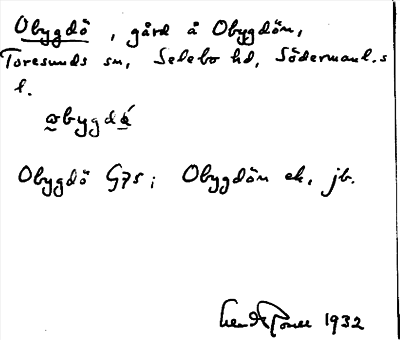 Obygdö, gård å Obygdön,
Toresunds sn, Selebo hd, Södermanl.s
l.
obygdö́
Obygdö G75; Obygdön ek, jb.
1932